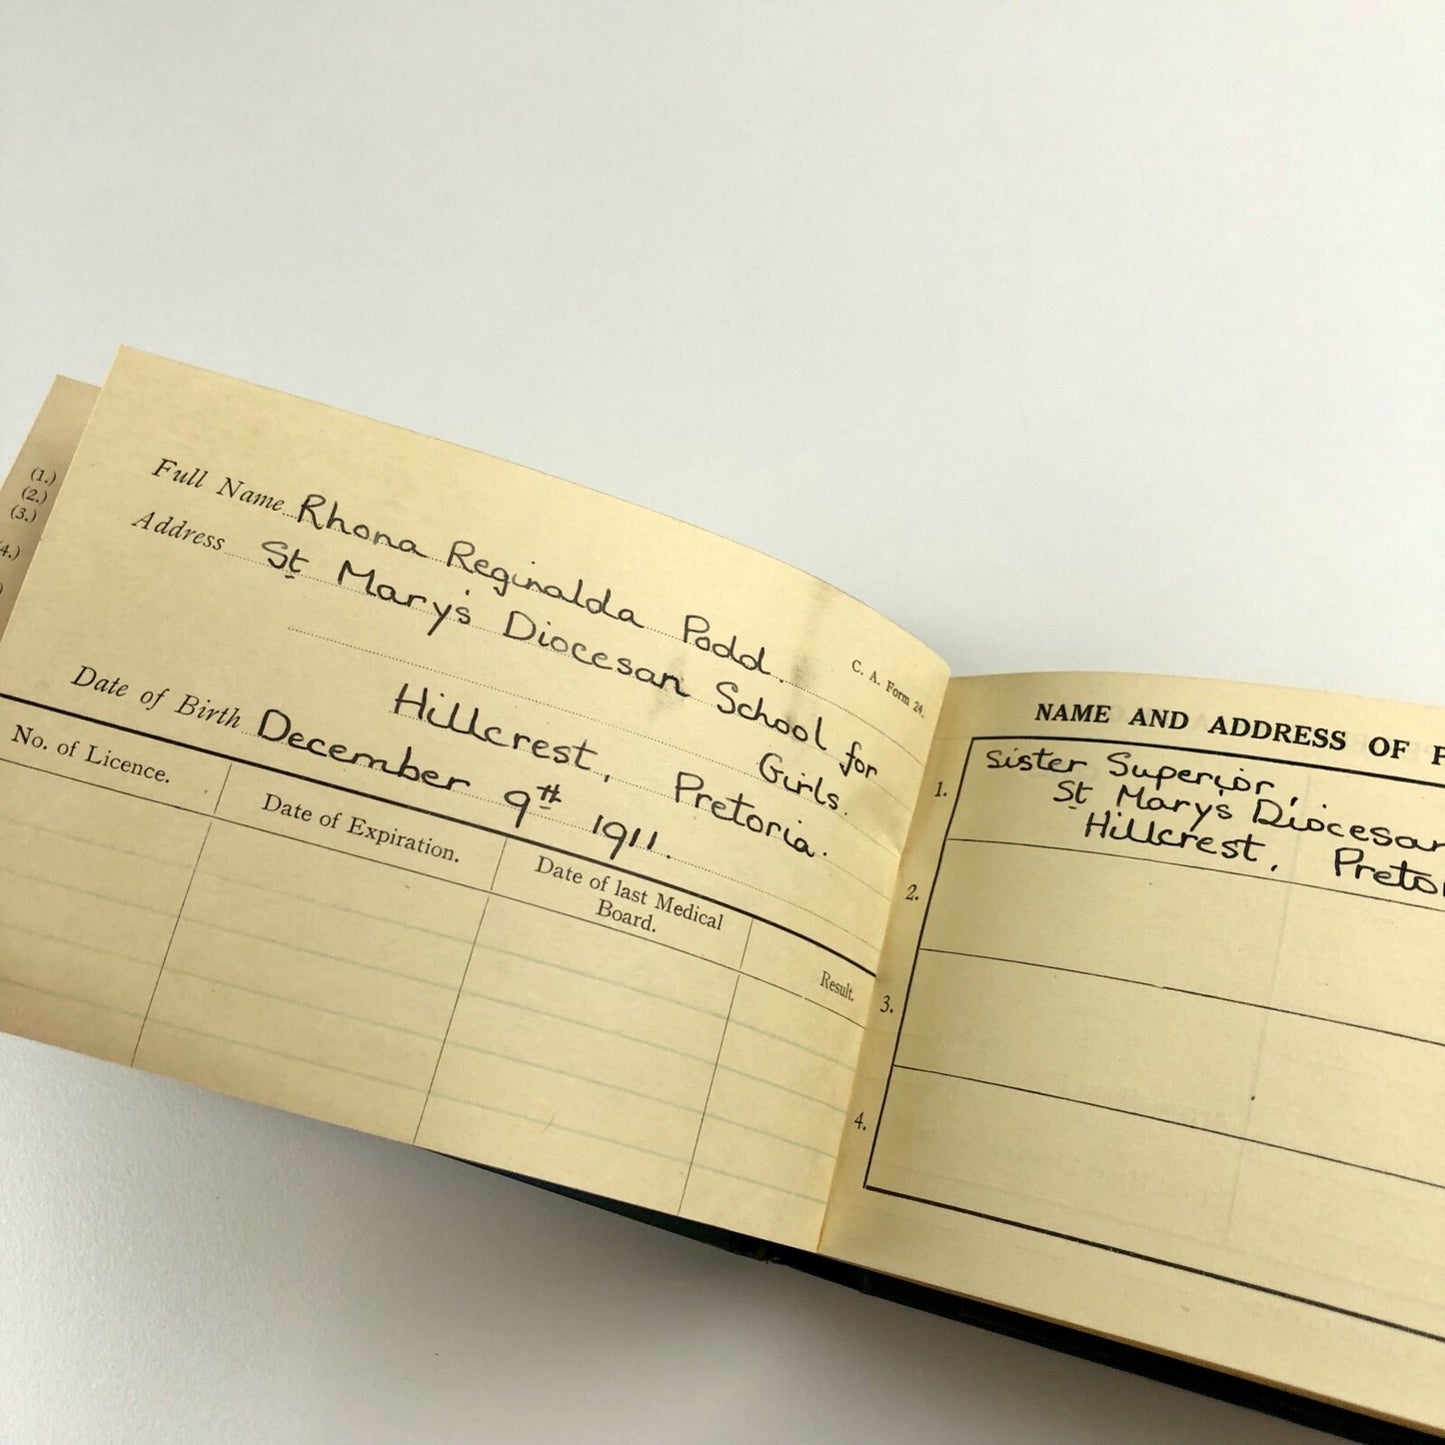 (1.)
(2.)
(3.)
(4.)
Full Name Rhona Reginalda Podd.
Address St Mary's Diocesan School for
Girls.
Hillcrest, Pretoria.
Date of Birth December 9th 1911.
C. A. Form 24.
No. of Licence.
Date of Expiration.
Date of last Medical
Board.
Result.
NAME AND ADDRESS OF
1. Sister Superior,
St Mary's Diocesan
Hillcrest,
2.
3.
4.